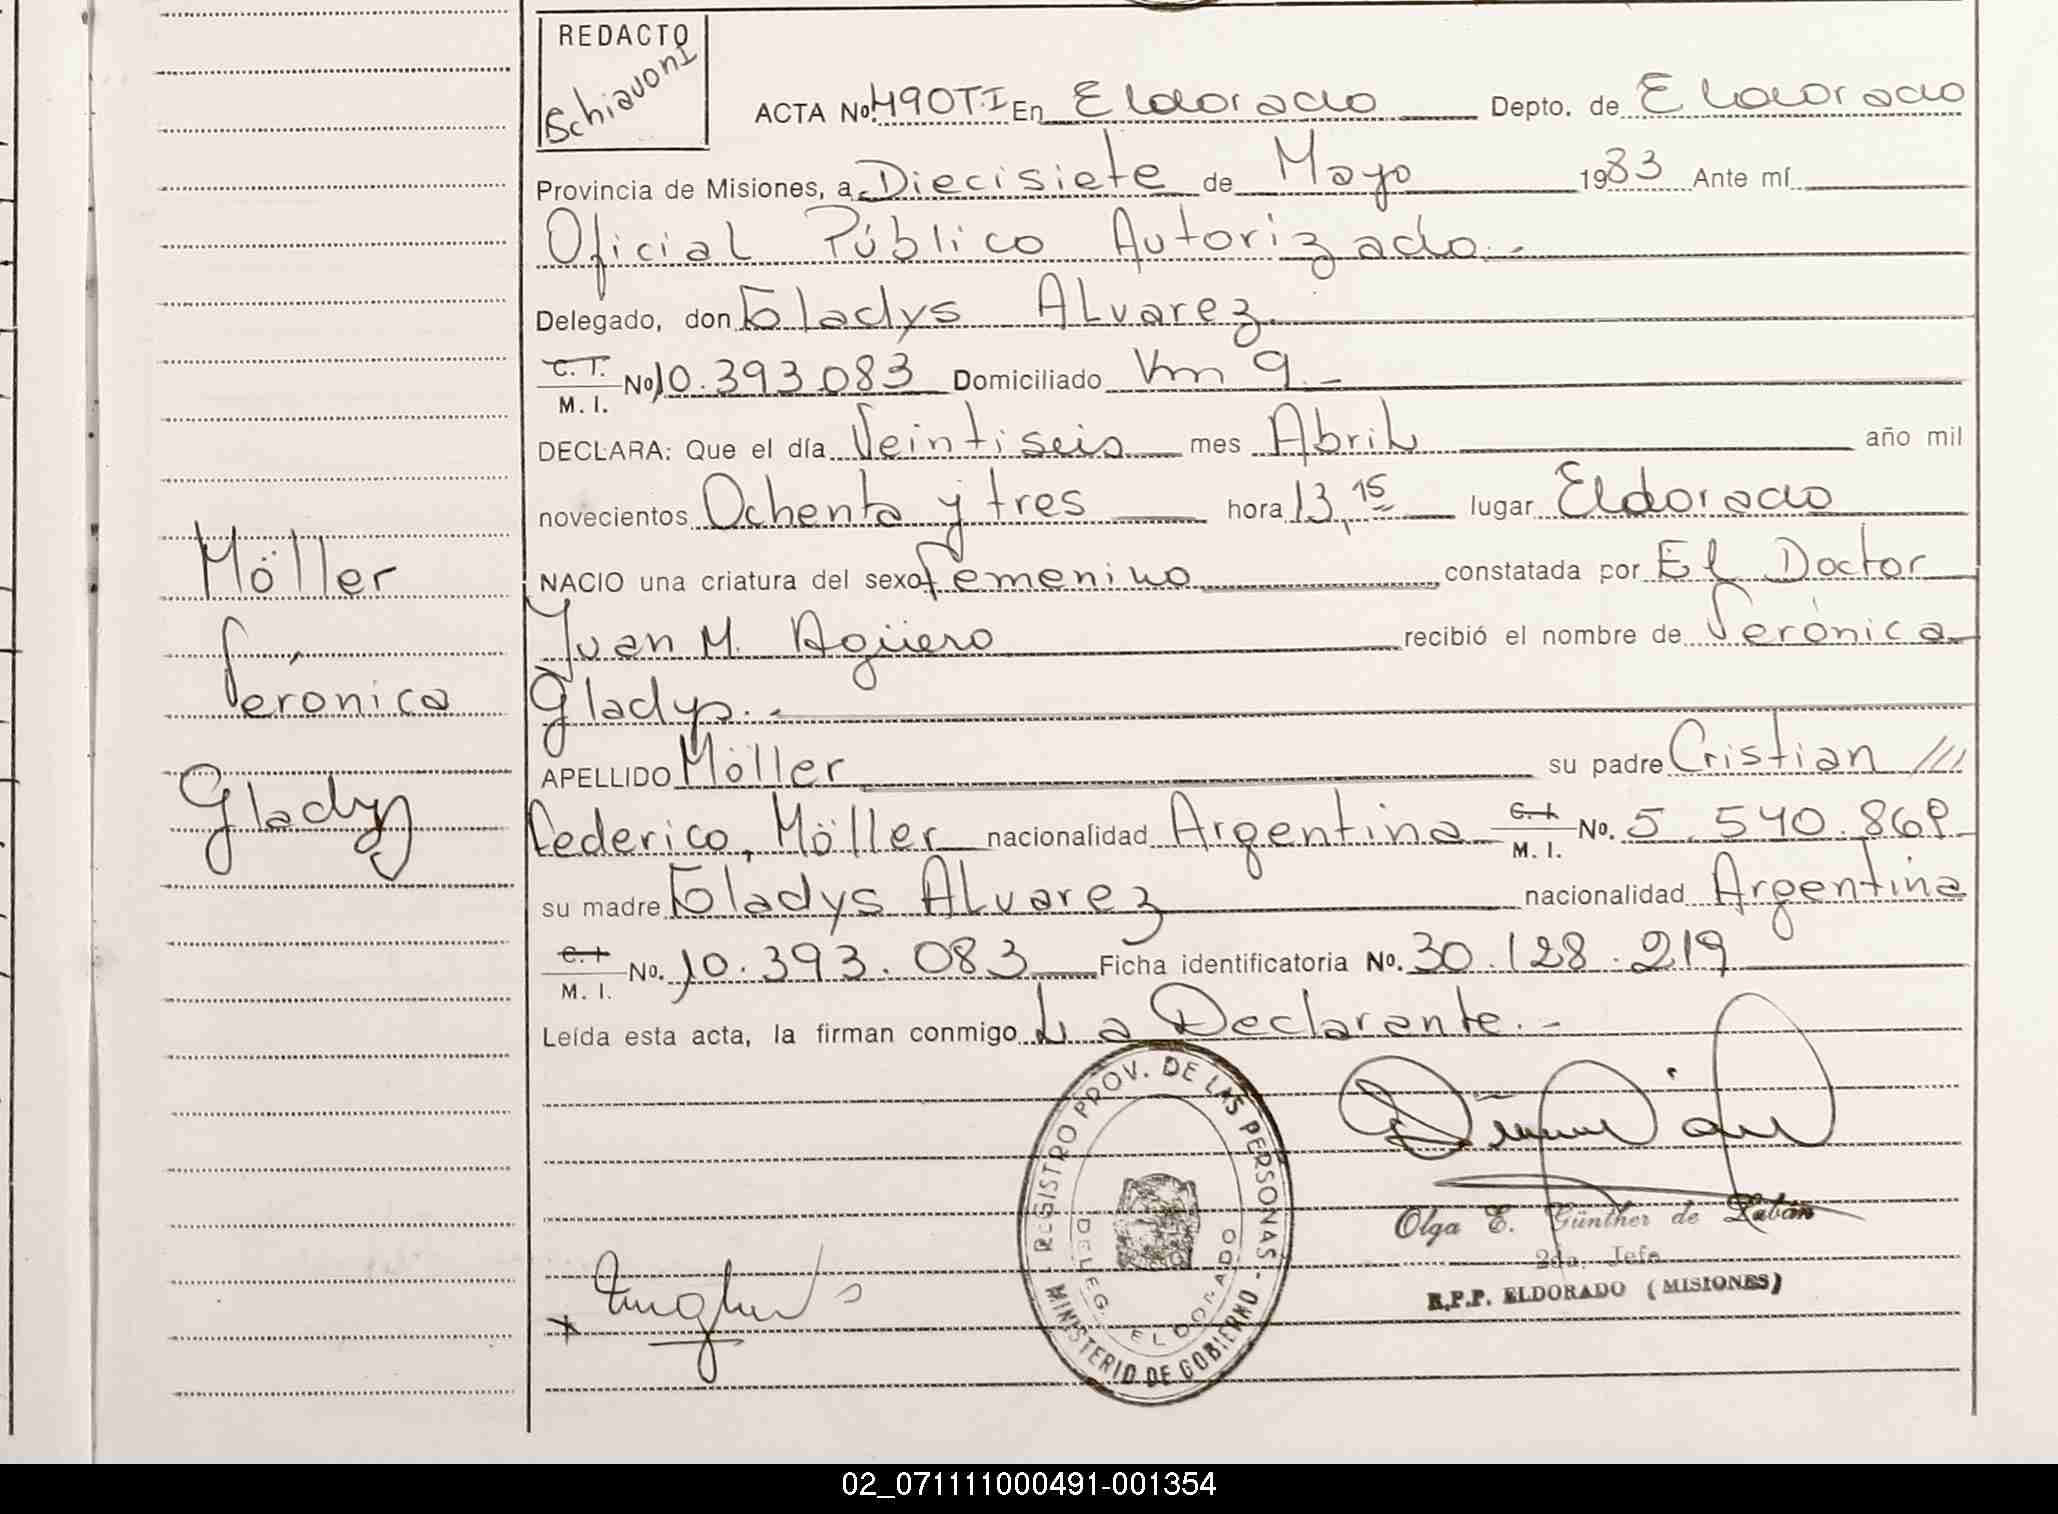 REDACTO
Schiavoni
ACTA No. 490 T.I En Eldorado Depto. de Eldorado
Provincia de Misiones, a Diecisiete de Mayo 1983 Ante mí
Oficial Público Autorizado.-
Delegado, don Gladys Alvarez.
C.I. M. I. No. 10.393.083 Domiciliado Km 9.-
DECLARA: Que el día Veintiseis mes Abril año mil
novecientos Ochenta y tres hora 13,15 lugar Eldorado
NACIO una criatura del sexo femenino constatada por El Doctor
Juan M. Agüero recibió el nombre de Verónica
Gladys.-
APELLIDO Möller su padre Cristian ///
Federico, Möller nacionalidad Argentina C.I. M. I. No. 5.540.869
su madre Gladys Alvarez nacionalidad Argentina
C.I. M. I. No. 10.393.083 Ficha identificatoria No. 30.128.219
Leída esta acta, la firman conmigo La Declarante.-
Möller
Verónica
Gladys
REGISTRO PROV. DE LAS PERSONAS - MINISTERIO DE GOBIERNO -
DELEG. ELDORADO
Olga E. Günther de Labán
2da. Jefe
R.P.P. ELDORADO (MISIONES)
02_071111000491-001354